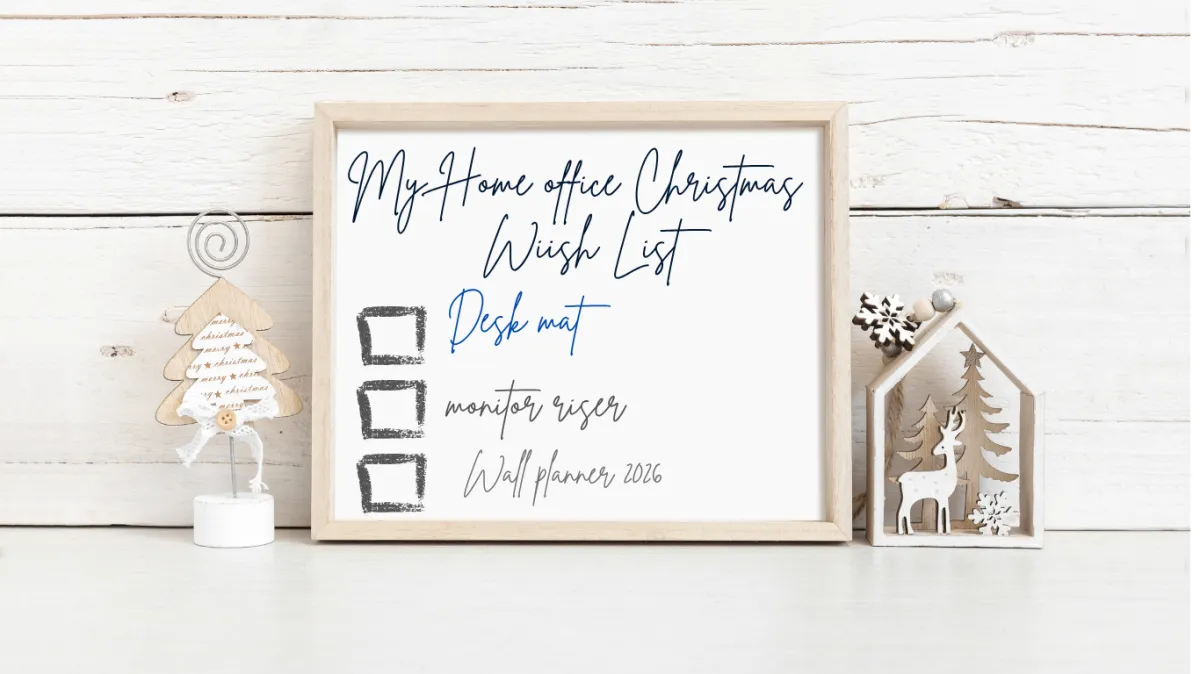 My Home office Christmas
Wiish List
Desk mat
monitor riser
Wall planner 2026
merry
christmas
merry
christmas
merry christmas
christmas
merry